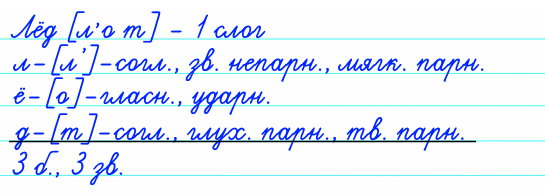 Лёд [л'о т] – 1 слог
л–[л']–согл., зв. непарн., мягк. парн.
ё–[о]–гласн., ударн.
д–[т]–согл., глух. парн., тв. парн.
3 б., 3 зв.